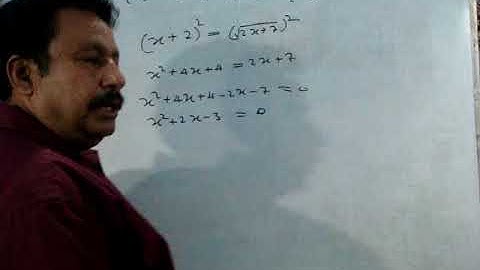 (x+2)² = (√2x+7)²
x²+4x+4 = 2x+7
x²+4x+4-2x-7 = 0
x²+2x-3 = 0